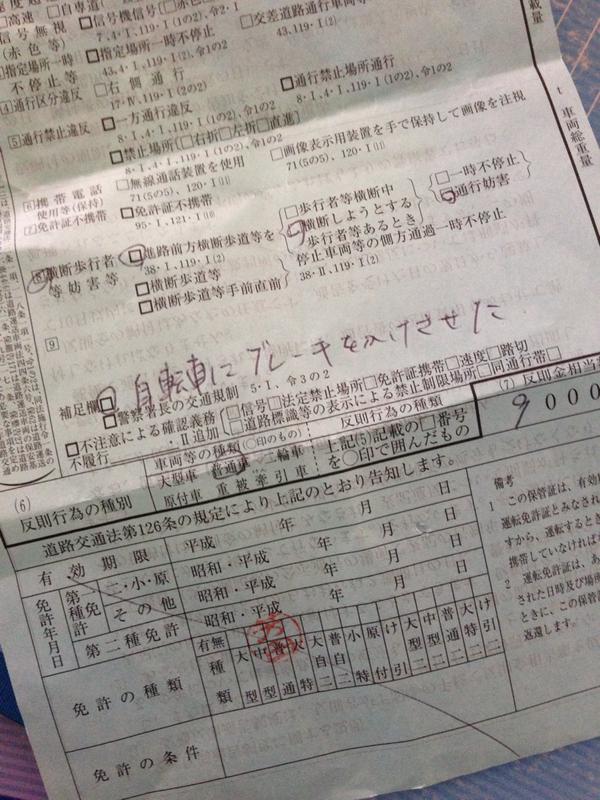 □高速 □自専道
□信号機信号(□赤色
7、4・Ⅰ、119・Ⅰ(1の2)、令2・Ⅰ
□交差道路通行車両等
43、119・Ⅰ(2)
信号無視
(赤色等)
□指定場所一時不停止
43、4・Ⅰ、119・Ⅰ(2)、令1の2
指定場所一時
不停止等
□右側通行
17・Ⅳ、119・Ⅰ(2の2)
4 通行区分違反
□通行禁止場所通行
8・Ⅰ、4・Ⅰ、119・Ⅰ(1の2)、令1の2
5 通行禁止違反
□一方通行違反
8・Ⅰ、4・Ⅰ、119・Ⅰ(1の2)、令1の2
□禁止場所(□右折□左折□直進)
8・Ⅰ、4・Ⅰ、119・Ⅰ(1の2)、令1の2
6 携帯電話
使用等(保持)
□無線通話装置を使用
71(5の5)、120・Ⅰ(11)
□画像表示用装置を手で保持して画像を注視
71(5の5)、120・Ⅰ(11)
7 免許証不携帯
□免許証不携帯
95・Ⅰ、121・Ⅰ(10)
8 横断歩行者
等妨害等
□進路前方横断歩道等を
38・Ⅰ、119・Ⅰ(2)
□歩行者等横断中
□横断しようとする
歩行者等あるとき
□一時不停止
□通行妨害
□横断歩道等
□横断歩道等手前直前
停止車両等の側方通過一時不停止
38・Ⅱ、119・Ⅰ(2)
9
自転車にブレーキをかけさせた
補足欄
□警察署長の交通規制 5・Ⅰ、令3の2
□不注意による確認義務
不履行 ・Ⅱ追加
□信号□法定禁止場所□免許証携帯□速度□踏切
□道路標識等の表示による禁止制限場所□同通行帯
(6)
反則行為の種別
車両等の種類(○印のもの)
大型車 普通車 二輪車
原付車 重被牽引車
反則行為の種類
上記(5)記載の□番号
を○印で囲んだもの
(7) 反則金相当
9000
道路交通法第126条の規定により上記のとおり告知します。
有効期限 平成 年 月 日
免許年月日
第一種免許
二・小・原 昭和・平成 年 月 日
その他 昭和・平成 年 月 日
第二種免許 昭和・平成 年 月 日
免許の種類
有無
種類
大型 中型 普通 大特 大自二 普自二 小特 原付 け引 大型二 中型二 普通二 大特二 け引二
免許の条件
備考
1 この保管証は、有効期
運転免許証とみなされ
すから、運転するとき
携帯していなければ
2 運転免許証は、あ
された日時及び場所
ときに、この保管証
返還します。
載量
t
車両総重量